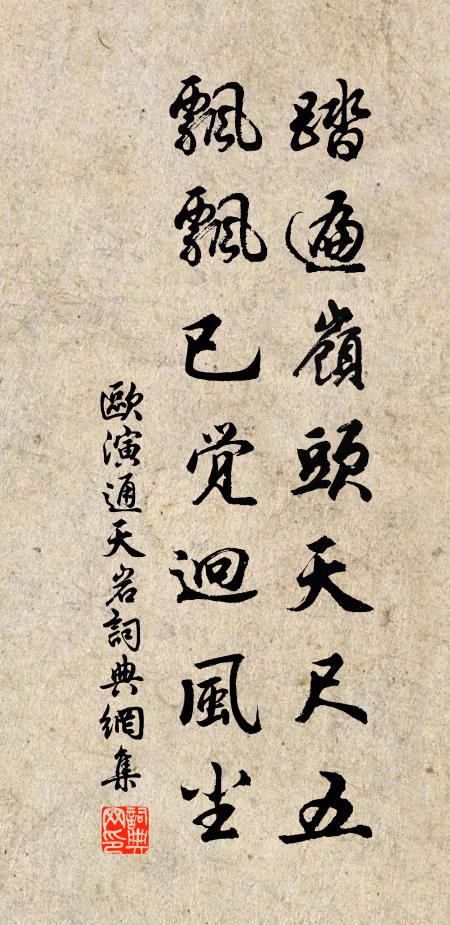 踏遍嶺頭天尺五
飄飄已觉迥風尘
歐演通天岩詞典網集
詞典网印